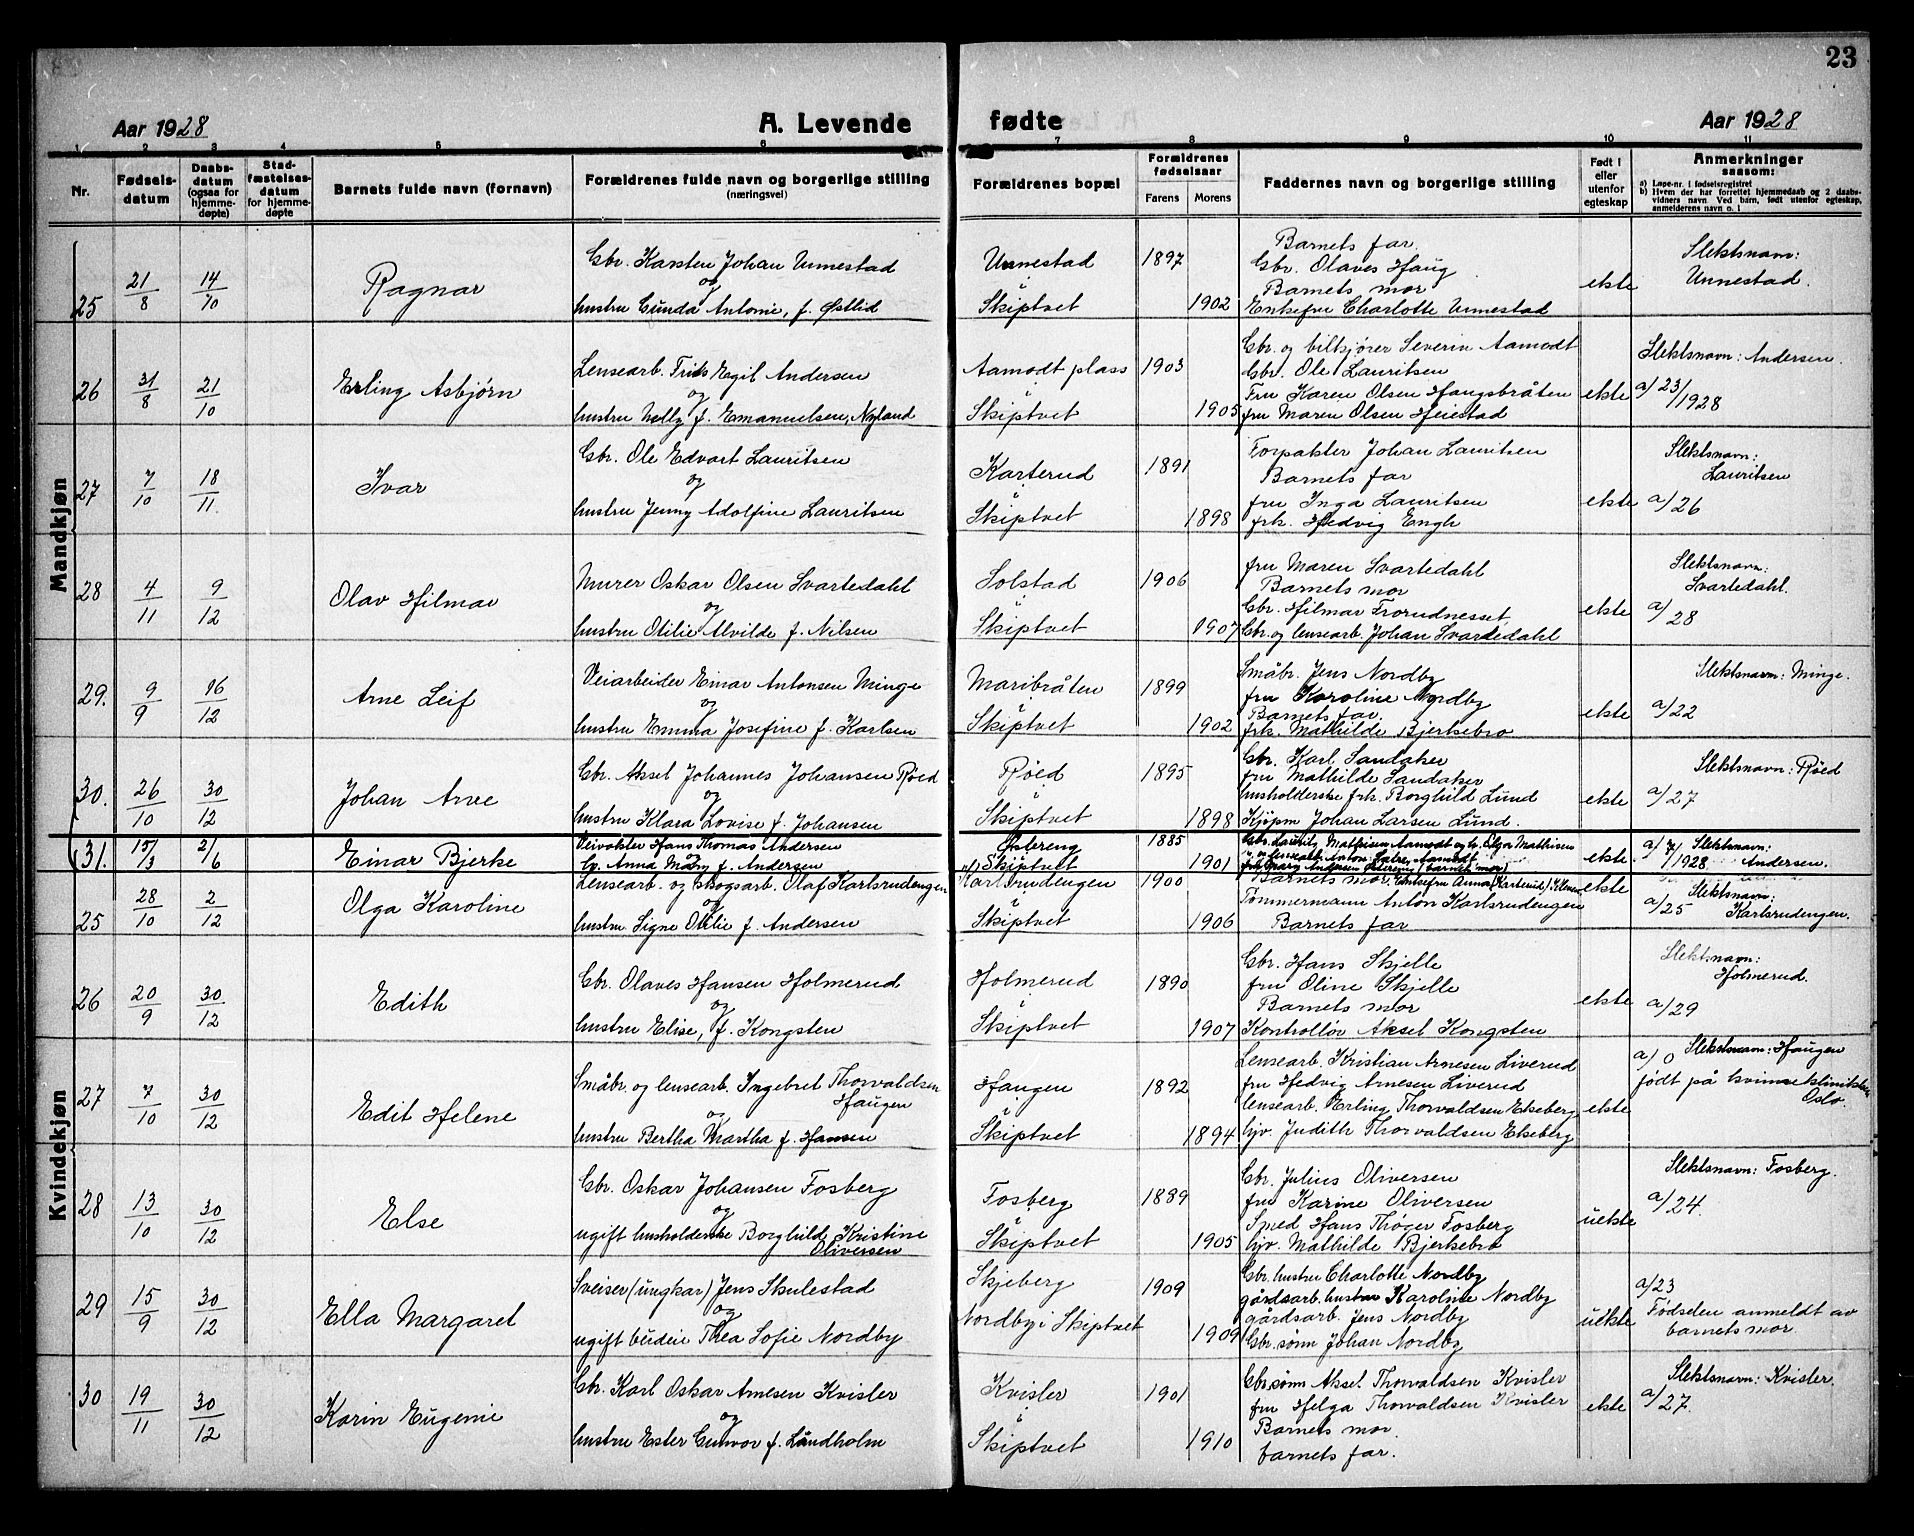 23
Aar 1928
A. Levende
fødte
Aar 1928
1 2 3 4 5 6 7 8 9 10 11
Nr.
Fødsels-
datum
Daabs-
datum
(ogsaa for
hjemme-
døpte)
Stad-
fæstelses-
datum
for hjemme-
døpte
Barnets fulde navn (fornavn)
Forældrenes fulde navn og borgerlige stilling
(næringsvei)
Forældrenes bopæl
Forældrenes
fødselsaar
Farens
Morens
Faddernes navn og borgerlige stilling
Født i
eller
utenfor
egteskap
Anmerkninger
saasom:
a) Løpe-nr. i fødselsregistret
b) Hvem der har forrettet hjemmedaab og 2 daabs-
vidners navn. Ved barn, født utenfor egteskap,
anmelderens navn o. l
Mandkjøn
25
21/8
14/10
Ragnar
Gbr. Karsten Johan Unnestad
og
hustru Gunda Antonie, f. Østlid
Unnestad
i
Skiptvet
1897
1902
Barnets far.
Gbr. Olaves Haug
Barnets mor
Enkefru Charlotte Unnestad
ekte
Slektsnavn:
Unnestad.
26
31/8
21/10
Erling Asbjørn
Lensearb. Frits Egil Andersen
og
hustru Nelly f. Emanuelsen, Nyland
Aamodt plass
i
Skiptvet
1903
1905
Gbr. og bilkjører Severin Aamodt
Gbr. Ole Lauritsen
Fru Karen Olsen Haugsbråten
fru Maren Olsen Heiestad
ekte
Slektsnavn: Andersen.
a/23/1928
27
7/10
18/11.
Ivar
Gbr. Ole Edvart Lauritsen
og
hustru Jenny Adolfine Lauritsen
Karterud
i
Skiptvet
1891
1898
Forpakter Johan Lauritsen
Barnets far
fru Inga Lauritsen
frk. Hedvig Engh
ekte
Slektsnavn:
Lauritsen
a/26
28
4/11
9/12
Olav Hilmar
Murer Oskar Olsen Svartedahl
og
hustru Otilie Alvilde f. Nilsen
Solstad
i
Skiptvet
1906
1907
fru Maren Svartedahl
Barnets mor
Gbr. Hilmar Frorudnesset,
Gbr. og lensearb. Johan Svartedahl
ekte
Slektsnavn:
Svartedahl.
a/28
29.
9/9
16/12
Arne Leif
Veiarbeider Einar Antonsen Minge
og
hustru Emma Josefine f. Karlsen
Maribråten
i
Skiptvet
1899
1902
Småbr. Jens Nordby
fru Karoline Nordby
Barnets far.
frk. Mathilde Bjerkebro
ekte
Slektsnavn: Minge.
a/22
30.
26/10
30/12
Johan Arve
Gbr. Aksel Johannes Johansen Røed
og
hustru Klara Lovise f. Johansen
Røed
i
Skiptvet
1895
1898
Gbr. Karl Sandaker
fru Mathilde Sandaker
husholderske frk. Borghild Lund
Kjøpm Johan Larsen Lund.
ekte
Slektsnavn: Røed
a/27
31.
15/3
2/6
Einar Bjerke
Veivokter Hans Thomas Andersen
og Anna Mary f. Andersen
Østereng
i Skiptvet
1885
1901
ekte
a/7/1928
Slektsnavn:
Andersen.
Kvindekjøn
25
28/10
2/12
Olga Karoline
Lensearb. og skogsarb. Olaf Karlsrudengen
og
hustru Signe Otilie f. Andersen
Karlsrudengen
i
Skiptvet
1900
1906
Barnets mor, Enkefru Anna
Tømmermann Anton Karlsrudengen
Barnets far
ekte
a/25
Slektsnavn:
Karlsrudengen.
26
20/9
30/12
Edith
Gbr. Olaves Hansen Holmerud
og
hustru Elise, f. Kongsten
Holmerud
i
Skiptvet
1890
1907
Gbr. Hans Skjelle
fru Oline Skjelle
Barnets mor
Kontrollør Aksel Kongsten
ekte
Slektsnavn:
Holmerud.
a/29
27
7/10
30/12
Edit Helene
Småbr. og lensearb. Ingebret Thorvaldsen
Haugen
og
hustru Bertha Martha f. Hansen
Haugen
i
Skiptvet
1892
1894
Lensearb. Kristian Arnesen Liverud
fru Hedvig Arnesen Liverud
lensearb. Erling Thorvaldsen Ekeberg
hjv. Judith Thorvaldsen Ekeberg
ekte
a/0 Slektsnavn: Haugen
født på kvinneklinikken
Oslo.
28
13/10
30/12
Else
Gbr. Oskar Johansen Fosberg
og
ugift husholderske Borghild Kristine
Oliversen
Fosberg
i
Skiptvet
1889
1905
Gbr. Julius Oliversen
fru Karine Oliversen
Smed Hans Thøger Fosberg
hjv. Mathilde Bjerkebro
uekte
Slektsnavn: Fosberg.
a/24.
29
15/9
30/12
Ella Margaret
Sveiser (ungkar) Jens Skulestad
og
ugift budeie Thea Sofie Nordby
Skjeberg
Nordby i Skiptvet
1909
1909
Gbr. hustru Charlotte Nordby
gårdsarb. hustru Karoline Nordby
gårdsarb. Jens Nordby
Gbr. sønn Johan Nordby
uekte
a/23
Fødselen anmeldt av
barnets mor.
30
19/11
30/12
Karin Eugenie
Gbr. Karl Oskar Arnesen Kvisler
og
hustru Ester Gunvor f. Lundholm
Kvisler
i
Skiptvet
1901
1910
Gbr. sønn Aksel Thorvaldsen Kvisler
fru Helga Thorvaldsen Kvisler
Barnets mor.
barnets far.
ekte
Slektsnavn: Kvisler.
a/27.